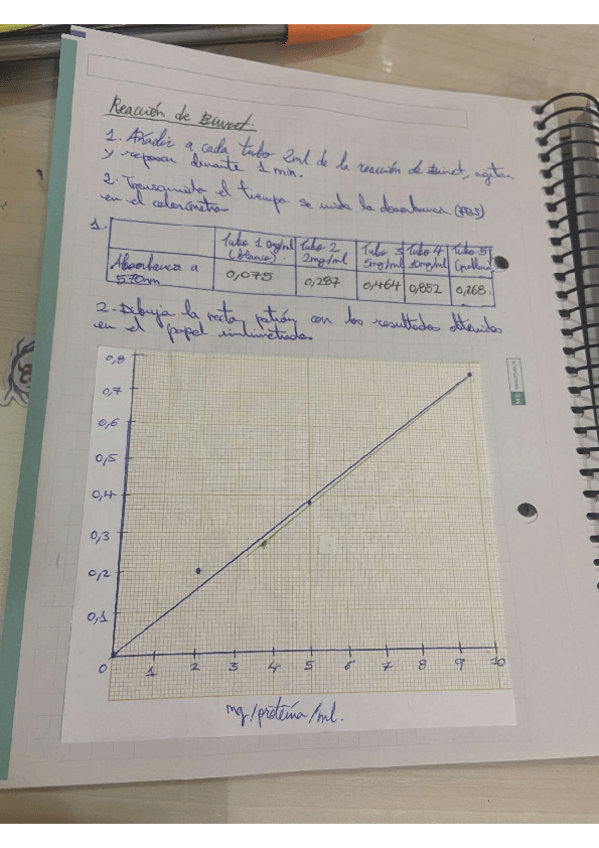 Reacción de Biuret.
1. Añadir a cada tubo 2ml de la reacción de Biuret, agitar
y reposar durante 1 min.
2. Transcurrido el tiempo se mide la absorbancia (ABS)
en el colorímetro
1.
Tubo 1 0mg/ml (blanco). Tubo 2 2mg/ml Tubo 3 5mg/ml Tubo 4 10mg/ml Tubo 5
Absorbancia a 570nm 0,075 0,287 0,464 0,852 0,268
2. Dibuja la recta patrón con los resultados obtenidos
en el papel milimetrado
0,8
0,7
0,6
0,5
0,4
0,3
0,2
0,1
0 1 2 3 4 5 6 7 8 9 10
mg/proteína/ml.